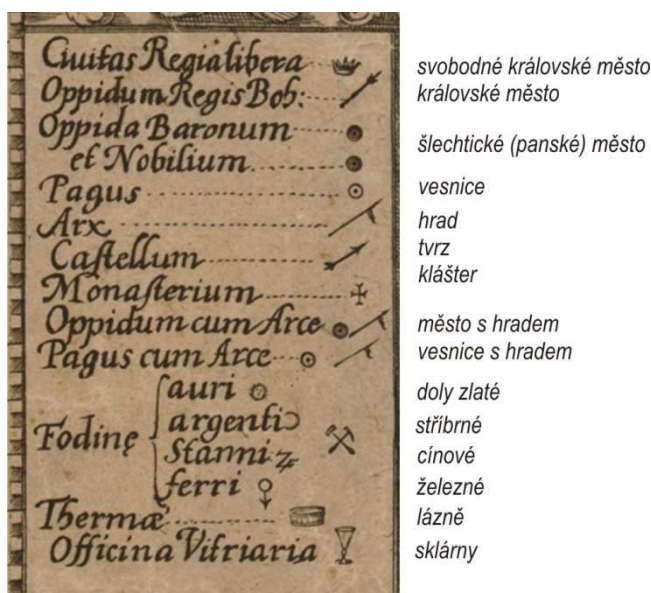 Civitas Regia libera
Oppidum Regis Boh:
Oppida Baronum
et Nobilium
Pagus
Arx
Castellum
Monasterium
Oppidum cum Arce
Pagus cum Arce
Fodinę
auri
argenti
Stanni
ferri
Thermæ
Officina Vitriaria
svobodné královské město
královské město
šlechtické (panské) město
vesnice
hrad
tvrz
klášter
město s hradem
vesnice s hradem
doly zlaté
stříbrné
cínové
železné
lázně
sklárny